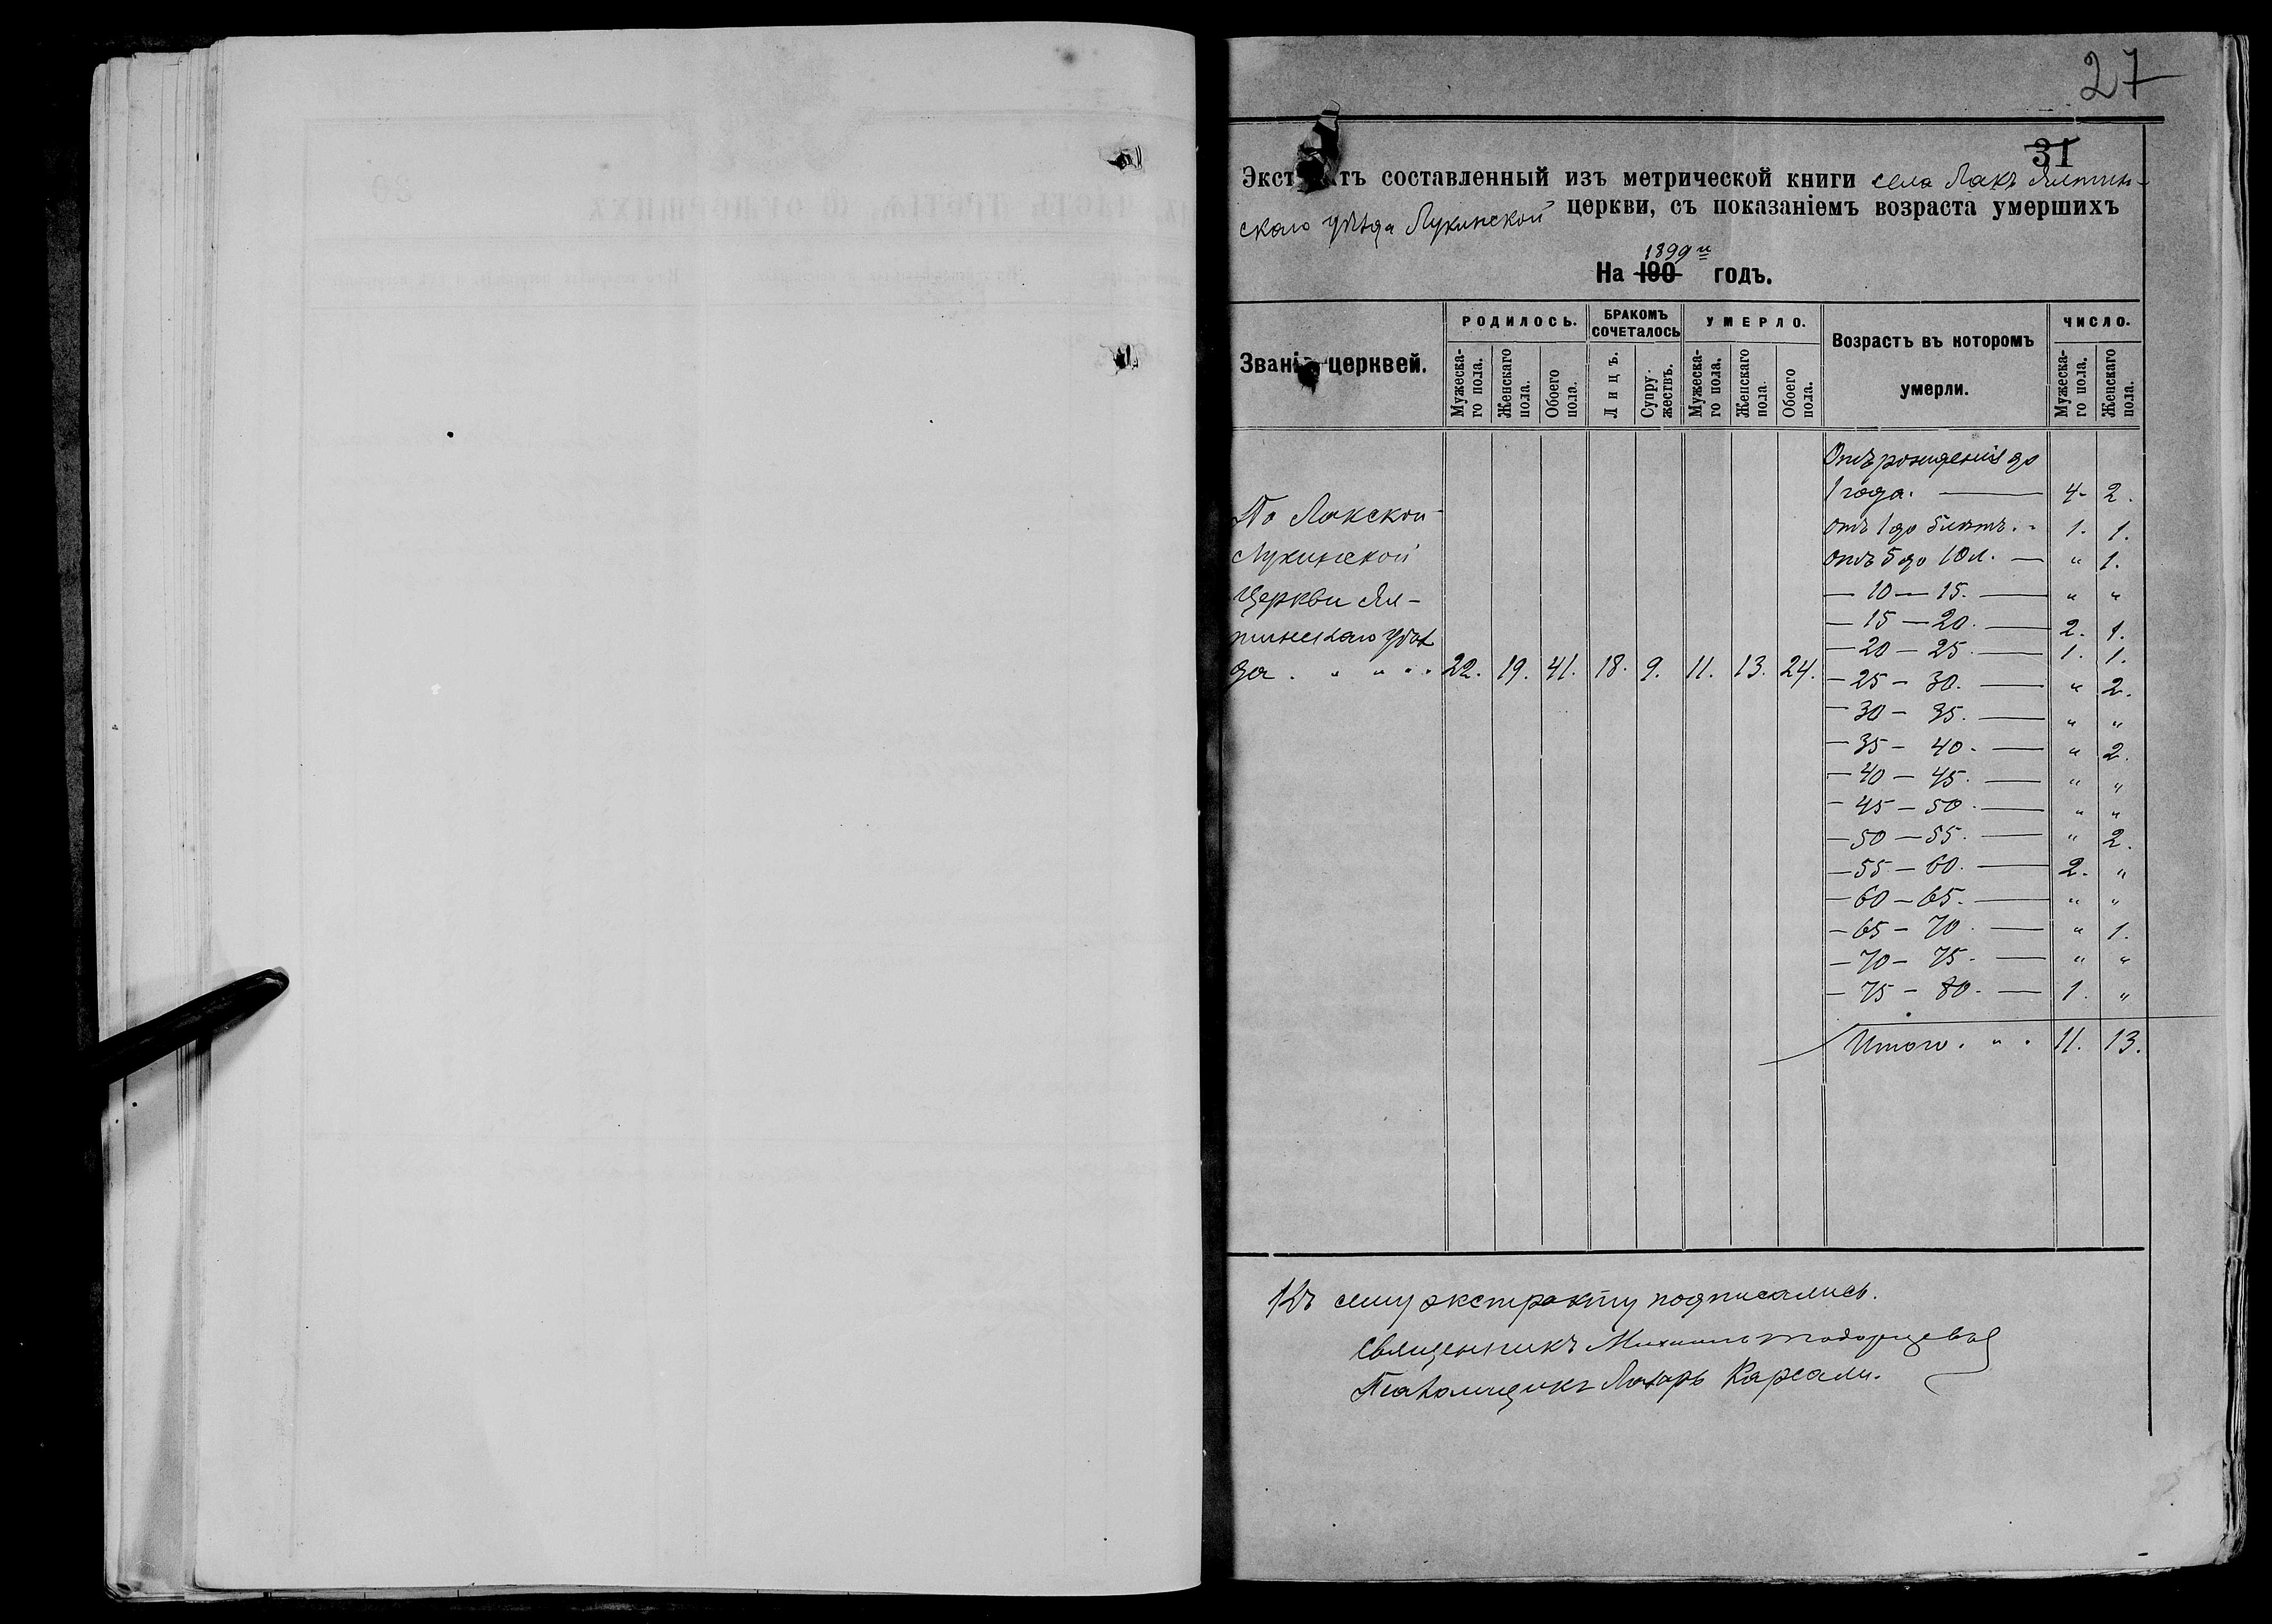 27
31
Экст тъ составленный изъ метрической книги села Лакъ Ялтин-
скаго уѣзда Лукинской церкви, съ показаніемъ возраста умершихъ
1899го
На 190 годъ.
Званіе церквей. РОДИЛОСЬ. БРАКОМЪ СОЧЕТАЛОСЬ УМЕРЛО. Возрастъ въ которомъ умерли. ЧИСЛО.
Мужеска-го пола. Женскаго пола. Обоего пола. Лицъ. Супру-жествъ. Мужеска-го пола. Женскаго пола. Обоего пола. Мужеска-го пола. Женскаго пола.
По Лакской
Лукинской
Церкви Ял-
тинскаго уѣз
да . „ „ „ . 22. 19. 41. 18. 9. 11. 13. 24.
Отъ рожденія до
1 года. — 4- 2.
отъ 1 до 5 лѣтъ. - 1. 1.
отъ 5 до 10 л. — „ 1.
— 10 — 15. — „ „
— 15 — 20. — 2. 1.
— 20 — 25. — 1. 1.
— 25 — 30. — „ 2.
— 30 — 35. — „ „
— 35 — 40. — „ 2.
— 40 — 45. — „ „
— 45 — 50. — „ „
— 50 — 55. — „ 2.
— 55 — 60. — 2. „
— 60 — 65. — „ „
— 65 — 70. — „ 1.
— 70 — 75. — „ „
— 75 — 80. — 1. „
Итого . „ . 11. 13.
Къ сему экстракту подписались.
Священникъ Михаилъ
Псаломщикъ Лазарь Карсали.